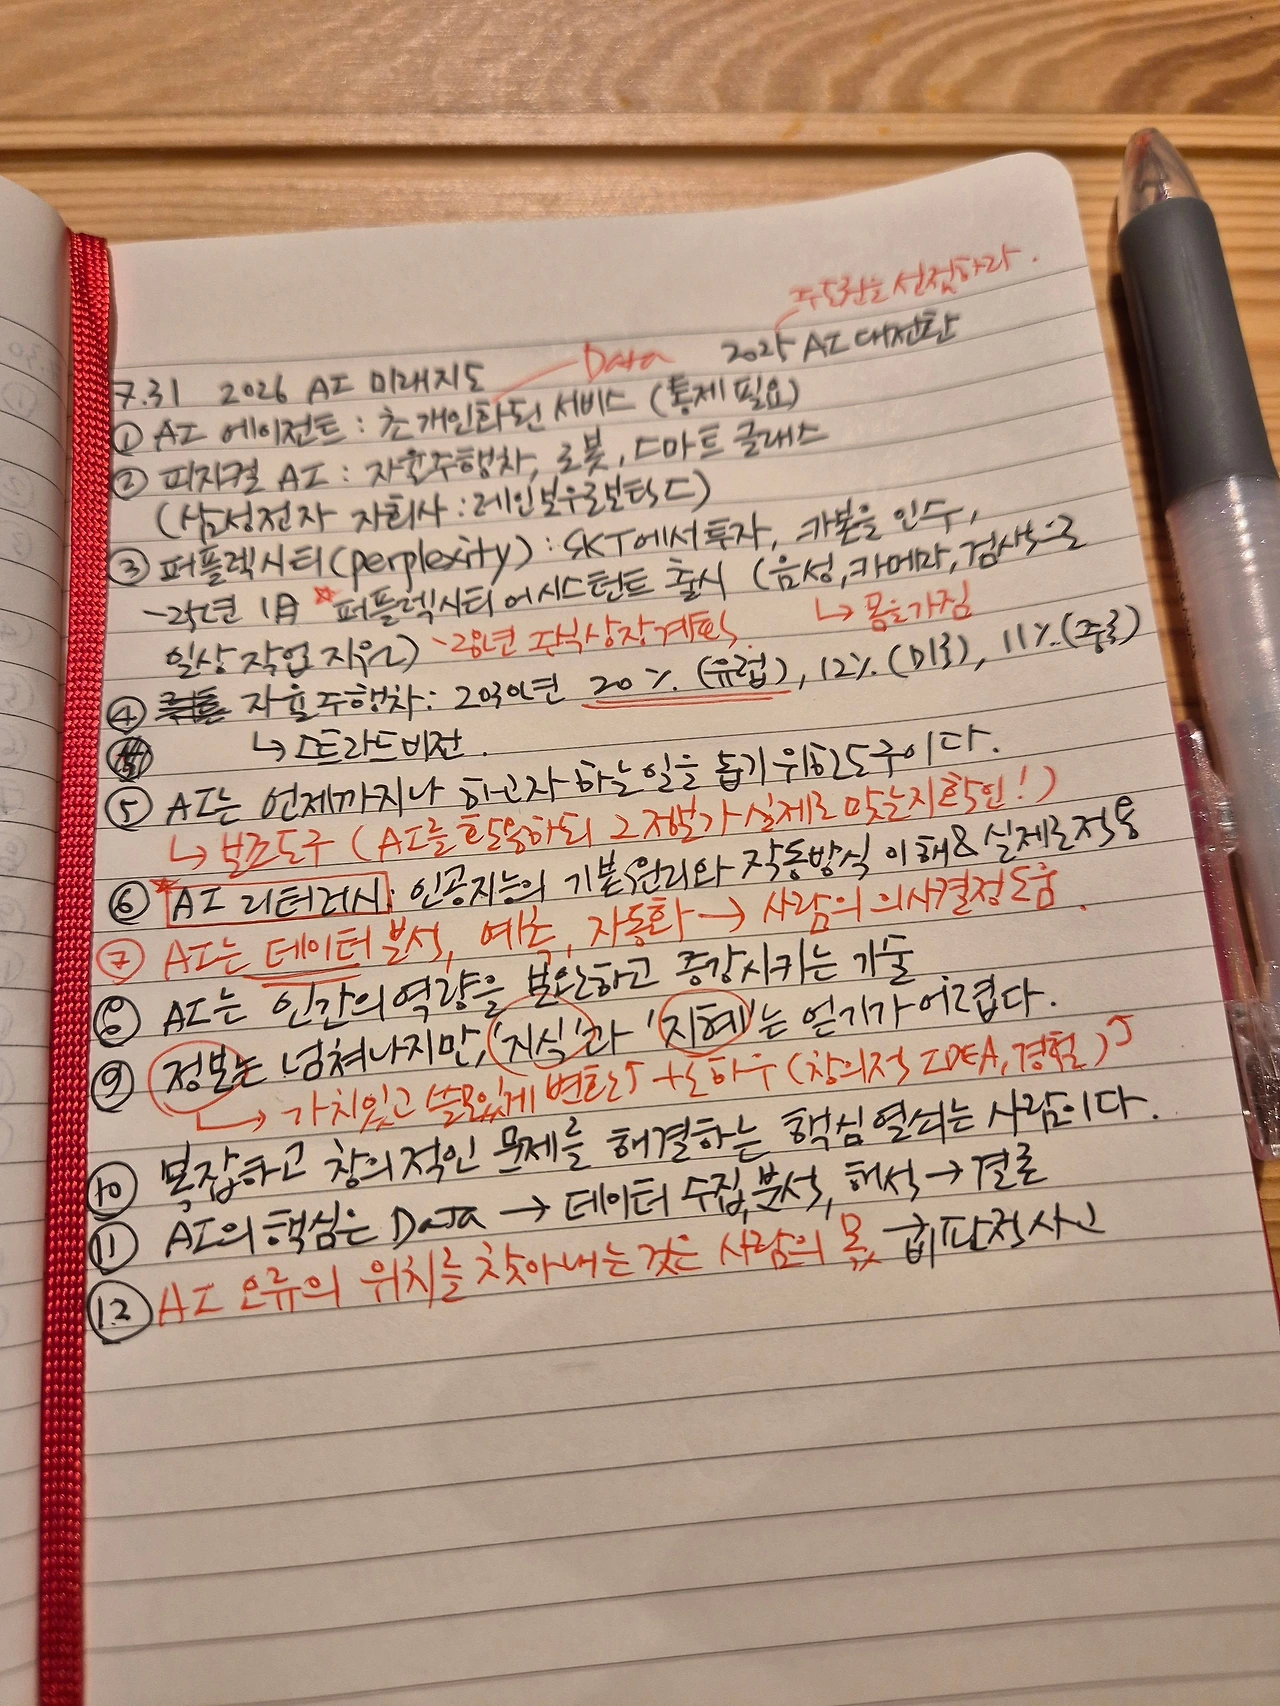 주도권을 선점하라.
Data 2025 AI 대전환
7.31 2026 AI 미래지도
① AI 에이전트 : 초개인화된 서비스 (통제 필요)
② 피지컬 AI : 자율주행차, 로봇, 스마트 글래스
(삼성전자 자회사 : 레인보우로보틱스)
③ 퍼플렉시티(perplexity) : SKT에서 투자, 카본을 인수,
-25년 1月 ☆퍼플렉시티 어시스턴트 출시 (음성, 카메라, 검색으로
↳ 몸을가짐
일상 작업 지원) -28년 주식상장계획.
④ 자율주행차 : 2030년 20%. (유럽), 12%. (미국), 11%. (중국)
↳ 스트라드비젼.
⑤ AI는 언제까지나 하고자 하는 일을 돕기 위한 도구이다.
↳ 보조도구 (AI를 활용하되 그 정보가 실제로 맞는지 확인!)
⑥ ☆AI 리터러시 : 인공지능의 기본원리와 작동방식 이해 & 실제로 적용
⑦ AI는 데이터 분석, 예측, 자동화 → 사람의 의사결정 도움.
⑧ AI는 인간의 역량을 보완하고 증강시키는 기술
⑨ 정보는 넘쳐나지만, '지식'과 '지혜'는 얻기가 어렵다.
↳ 가치있고 쓸모있게 변환 + 노하우 (창의적 IDEA, 경험)
⑩ 복잡하고 창의적인 문제를 해결하는 핵심 열쇠는 사람이다.
⑪ AI의 핵심은 Data → 데이터 수집, 분석, 해석 → 결론
⑫ AI 오류의 위치를 찾아내는 것은 사람의 몫 → 비판적 사고